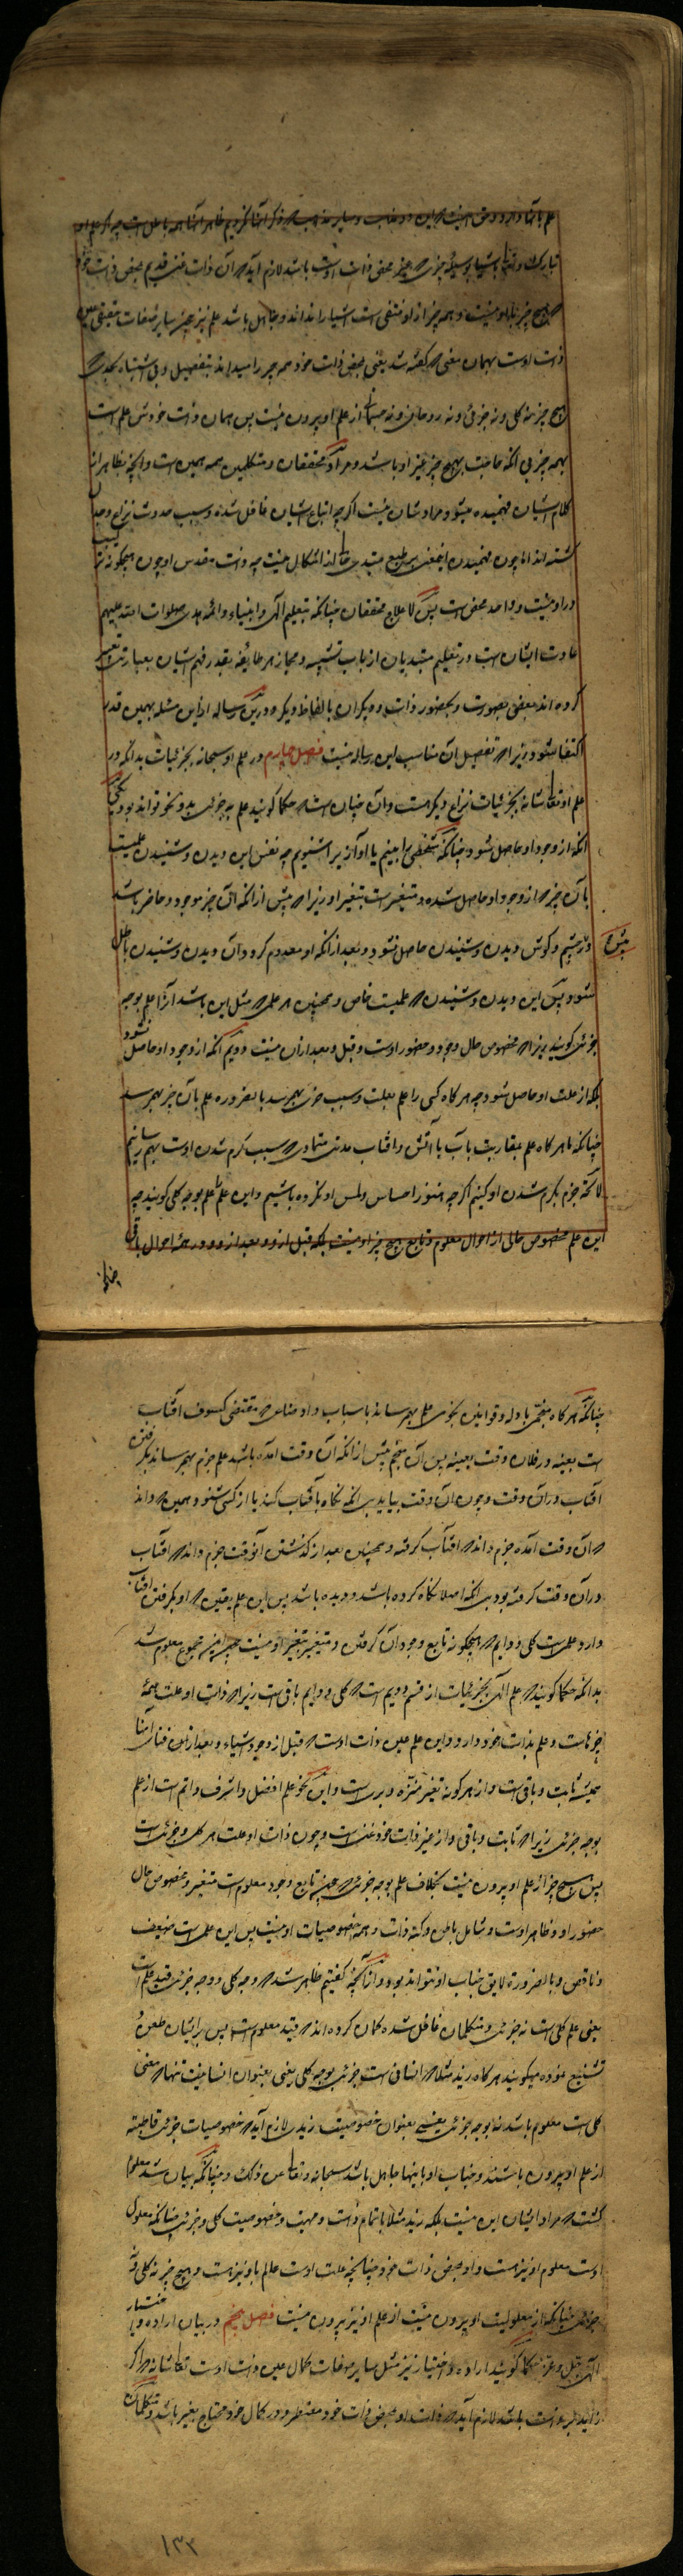 علم بآنها دارد و حق اینست که این دو مذهب و سایر مذاهب که ذکر آنها نکردیم ظاهر آنها همه باطل است چه اگر علم او
تبارک و تعالی باشیا بوسیله چیزی که غیر محض ذات اوست باشد لازم آید که آن ذات غنی قدیم بمحض ذات خود
که هیچ چیز با او نیست و همه چیز ازو منتفی است اشیا را نداند و جاهل باشد علم نیز چون سایر صفات حقیقی عین
ذات اوست بهمان معنی که گفته شد یعنی بمحض ذات خود همه چیز را میداند بتفصیل و بی اشتباه بحدی که
هیچ چیز نه کلی و نه جزئی و نه روحانی و نه جسمانی از علم او بیرون نیست پس همان ذات خودش علم است
بهمه چیز بی آنکه حاجت بهیچ چیز غیر او باشد و مراد محققان و متکلمین همه همین است و آنچه بظاهر از
کلام ایشان فهمیده میشود مراد ایشان نیست اگرچه اتباع ایشان غافل شده و سبب حدوث نزاع و جدل
شده اند اما چون فهمیدن این معنی بر طبع مبتدی خالی از اشکال نیست چه ذات مقدس او چون هیچگونه ترکیب
درو نیست و واحد محض است پس لاعلاج محققان چنانکه تعلیم الهی و انبیاء و ائمه هدی صلوات الله علیهم
عادت ایشان است در تعلیم مبتدیان از باب تشبیه و مجاز هر طایفه بقدر فهم ایشان بعبارتی تعبیر
کرده اند بعضی بصورت و بحضور ذات و دیگران بالفاظ دیگر و درین رساله ازاین مسئله بهمین قدر
اکتفا میشود زیرا که تفصیل آن مناسب این رساله نیست فصل چهارم در علم او سبحانه بجزئیات بدانکه در
علم او تعالی شانه بجزئیات نزاع دیگر هست و آن چنان است که حکما گویند علم بچیزی بدو نحو تواند بود یکی
آنکه از وجود او حاصل شود چنانکه شخصی را بینیم یا آوازی را شنویم چه نفس این دیدن و شنیدن علمیست
بآن چیز که از وجود او حاصل شده و متغیر است بتغیر او زیرا که پیش از آنکه آن چیز موجود و حاضر باشد
پیش
در چشم و گوش دیدن و شنیدن حاصل نشود و بعد از آنکه او معدوم گردد آن دیدن و شنیدن باطل
شود پس این دیدن و شنیدن که علمیست خاص و همچنین هر علمی که مثل این باشد آنرا علم بوجه
جزئی گویند زیرا که مخصوص حال وجود و حضور اوست و قبل و بعد از آن نیست دویم آنکه از وجود او حاصل نشود
بلکه از علت او حاصل شود چه هرگاه کسی را علم بعلت و سبب چیزی بهم رسد بالضروره علم بآن چیز بهم رسد
چنانکه ما هرگاه علم بمقاربت با آب یا آتش و آفتاب مدتی متمادی که سبب گرم شدن اوست بهم رسانیم
لامحاله جزم بگرم شدن او کنیم اگرچه هنوز احساس و لمس او نکرده باشیم و این علم را علم بوجه کلی گویند چه
این علم مخصوص حالی از احوال معلوم و تابع هیچ چیز او نیست بلکه قبل ازو و بعد ازو و در همه احوال باقی
چنانکه
چنانکه هرگاه منجمی بادله و قوانین نجومی علم بهم رساند باسباب و اوضاعی که مقتضی کسوف آفتاب
است بعینه در فلان وقت بعینه پس آن منجم پیش از آنکه آن وقت آمده باشد علم جزم بهم رساند بگرفتن
آفتاب در آن وقت و چون آن وقت بیاید بی آنکه نگاه بآفتاب کند یا از کسی شنود همین که داند
که آن وقت آمده جزم داند که آفتاب گرفته و همچنین بعد از گذشتن آنوقت جزم داند که آفتاب
در آن وقت گرفته بود بی آنکه اصلا نگاه کرده باشد و دیده باشد پس این علم یقین که او بگرفتن آفتاب
دارد علمی است کلی و دایم که هیچگونه تابع وجود آن گرفتن و متغیر بتغیر او نیست چون این مجموع معلوم شد
بدانکه حکما گویند که علم الهی بجزئیات از قسم دویم است که کلی و دایم باقی است زیرا که ذات او علت همه
چیزهاست و علم بذات خود دارد و این علم عین ذات اوست که قبل از وجود اشیاء و بعد از فنای آنها
همیشه ثابت و باقی است و از هرگونه تغیر منزه و بری است و این نحو علم افضل و اشرف و اتم است از علم
بوجه جزئی زیرا که ثابت و باقی و از غیر ذات خود غنی است و چون ذات او علت هر کلی و جزئی است
پس هیچ چیز از علم او بیرون نیست بخلاف علم بوجه جزئی که چون تابع وجود معلوم است متغیر و مخصوص حال
حضور او و ظاهر اوست و شامل باطن و کنه ذات و همه خصوصیات او نیست پس این علمی است ضعیف
و ناقص و بالضرورة لایق جناب او نتواند بود و از آنچه گفتیم ظاهر شد که وجه کلی و وجه جزئی قید علم است
یعنی علم کلی است نه جزئی و متکلمان غافل شده گمان کرده اند که قید معلوم است پس بر ایشان طعن و
تشنیع نموده میگویند هرگاه زید مثلا که انسانی است جزئی بوجه کلی یعنی بعنوان انسانیت تنها که معنی
کلی است معلوم باشد نه بوجه جزئی یعنی بعنوان خصوصیت زیدی لازم آید که خصوصیات جزئی قاطبتة
از علم او بیرون باشند و جناب او باینها جاهل باشد سبحانه و تعالی عن ذلک و چنانکه بیان شد معلوم
گشت که مراد ایشان این نیست بلکه زید مثلا باتمام ذات و مهیت و خصوصیت کلی و جزئی چنانکه معلول
اوست معلوم او نیز هست و او بمحض ذات خود چنانچه علت اوست عالم باو نیز هست و هیچ چیز نه کلی و نه
جزئی چنانکه از معلولیت او بیرون نیست از علم او نیز بیرون نیست فصل پنجم در بیان اراده و اختیار
الهی جل و عز حکما گویند اراده و اختیار نیز مثل سایر صفات کمال عین ذات اوست تعالی شانه که اگر
زاید بر ذات باشد لازم آید که ذات او بمحض ذات خود مضطر و در کمال خود محتاج بغیر باشد و متکلمان
۱۳۳